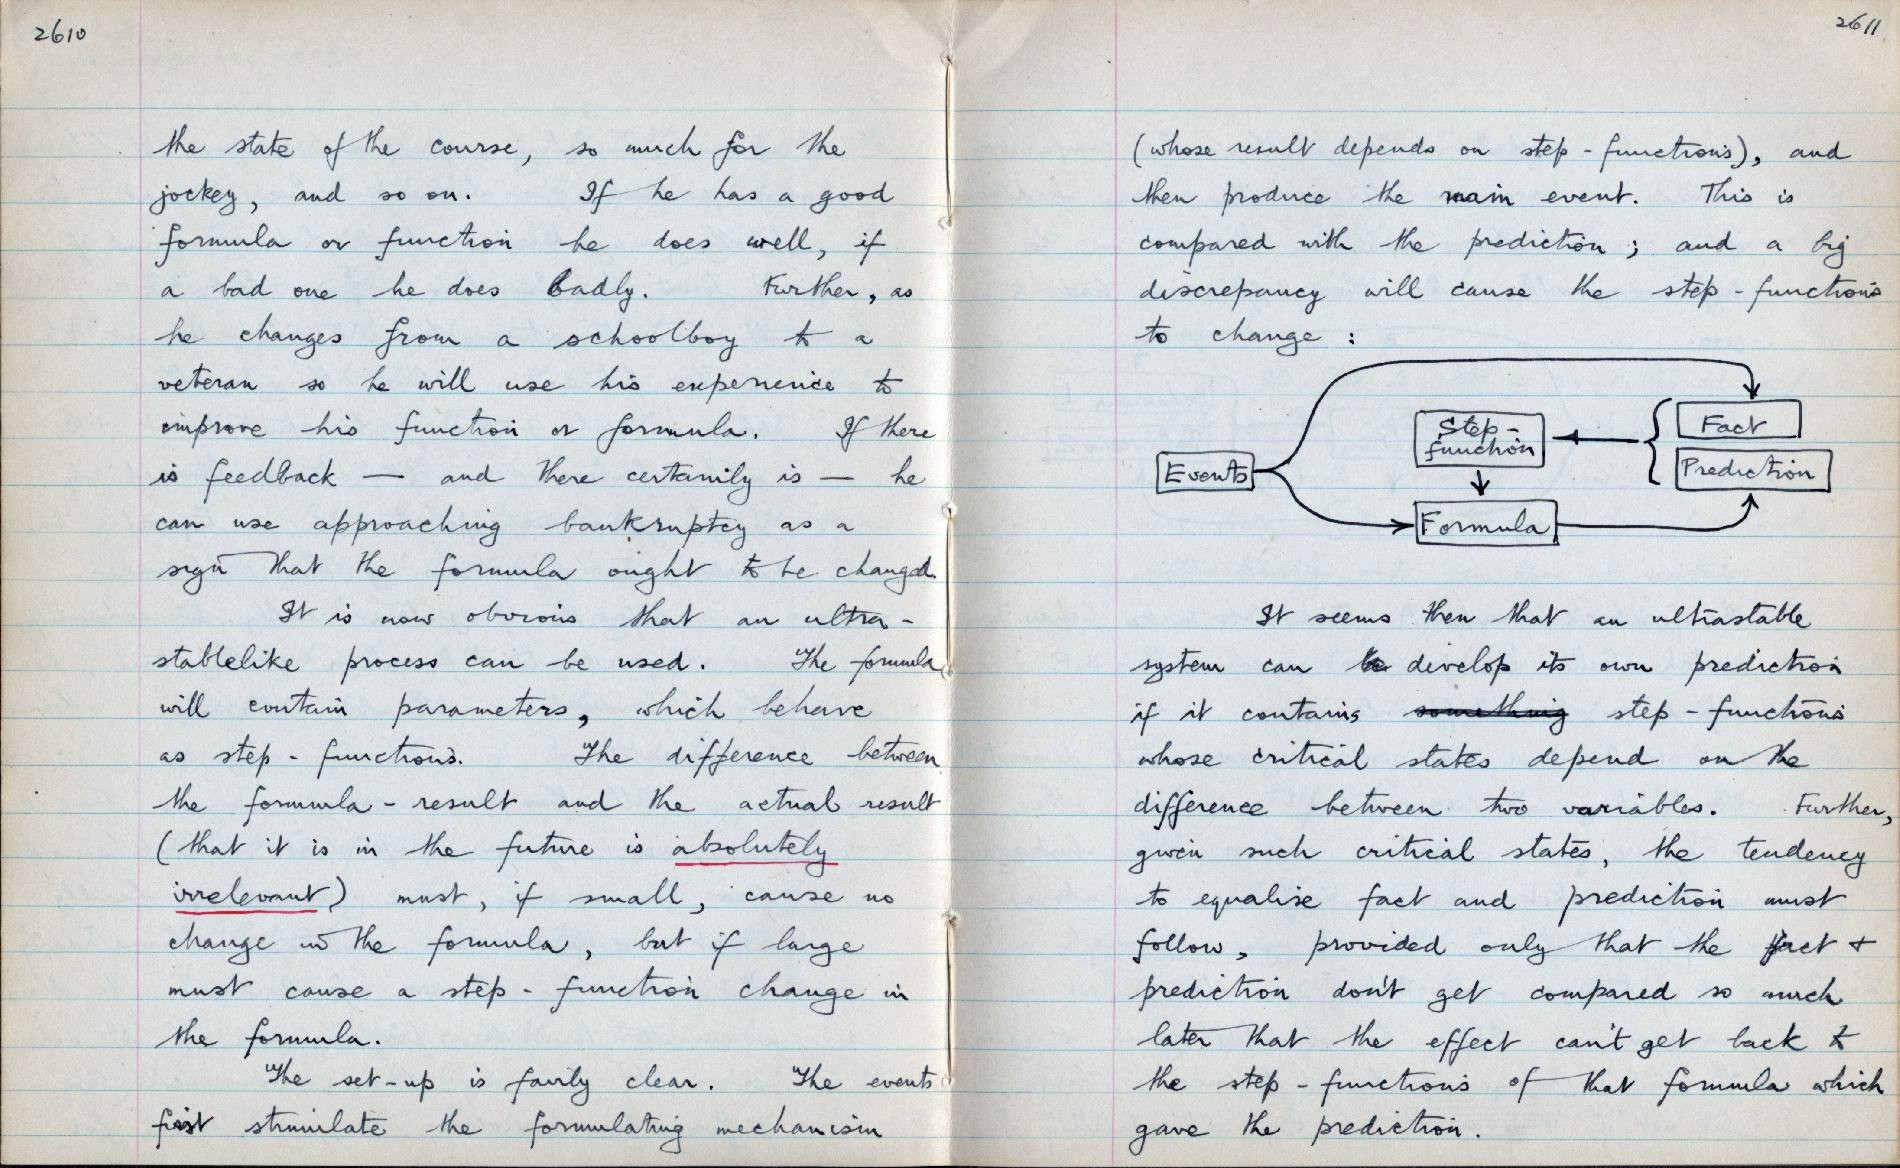 2610
the state of the course, so much for the
jockey, and so on. If he has a good
formula or function he does well, if
a bad one he does badly. Further, as
he changes from a schoolboy to a
veteran so he will use his experience to
improve his function or formula. If there
is feedback — and there certainly is — he
can use approaching bankruptcy as a
sign that the formula ought to be changed.
It is now obvious that an ultra-
stablelike process can be used. The formula
will contain parameters, which behave
as step-functions. The difference between
the formula-result and the actual result
(that it is in the future is absolutely
irrelevant) must, if small, cause no
change in the formula, but if large
must cause a step-function change in
the formula.
The set-up is fairly clear. The events
first stimulate the formulating mechanism
2611
(whose result depends on step-functions), and
then produce the main event. This is
compared with the prediction; and a big
discrepancy will cause the step-functions
to change:
Events
Step-
function
Formula
Fact
Prediction
It seems then that an ultrastable
system can be develop its own prediction
if it contains something step-functions
whose critical states depend on the
difference between two variables. Further,
given such critical states, the tendency
to equalise fact and prediction must
follow, provided only that the fact &
prediction don't get compared so much
later that the effect can't get back to
the step-functions of that formula which
gave the prediction.